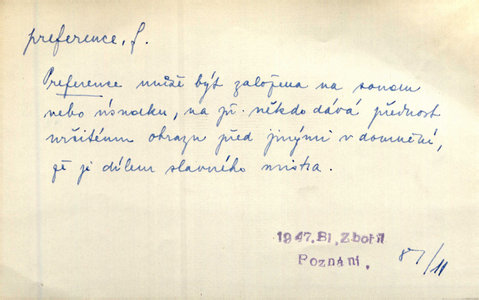 preference, f.
Preference může být založena na sondu
nebo úsudku, na př. někdo dává přednost
určitému obrazu před jinými v domnění,
že je dílem slavného mistra.
1947, Bl, Zbořil
Poznání.
87/11